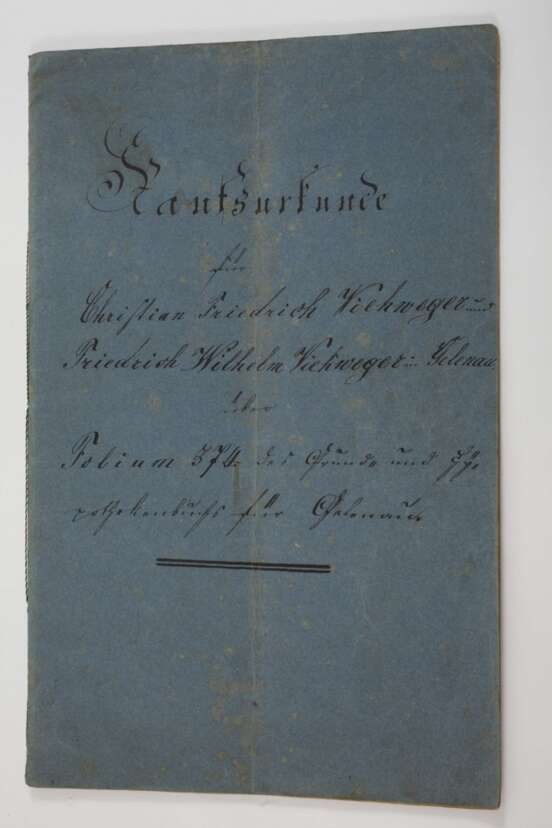 Kaufsurkunde
für
Christian Friedrich Viehweger und
Friedrich Wilhelm Viehweger in Gelenau,
über
Folium 374. des Grund- und Hy-
pothekenbuchs für Gelenau.